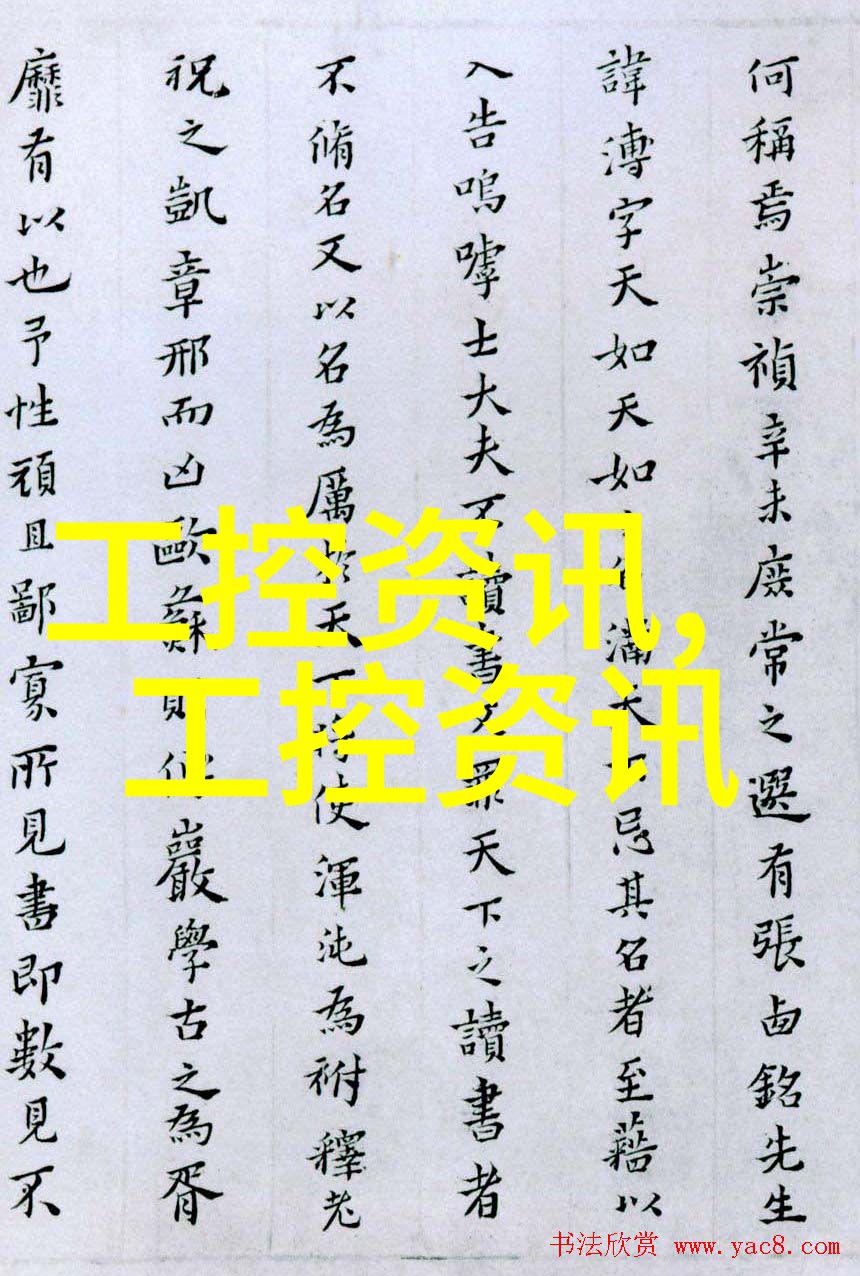 何稱焉崇禎辛未庶常之選有張卣銘先生
諱溥字天如天如滿天忌其名者至藉以
入告嗚嘑士大夫不讀書罪天下之讀書者
不脩名又以名為厲於天使渾沌為祔釋老
祝之凱章邢而凶歐蘇巖學古之為胥
靡有以也予性頑且鄙寡所見書即數見不
工控资讯,
工控资讯
书法欣赏 www.yac8.com